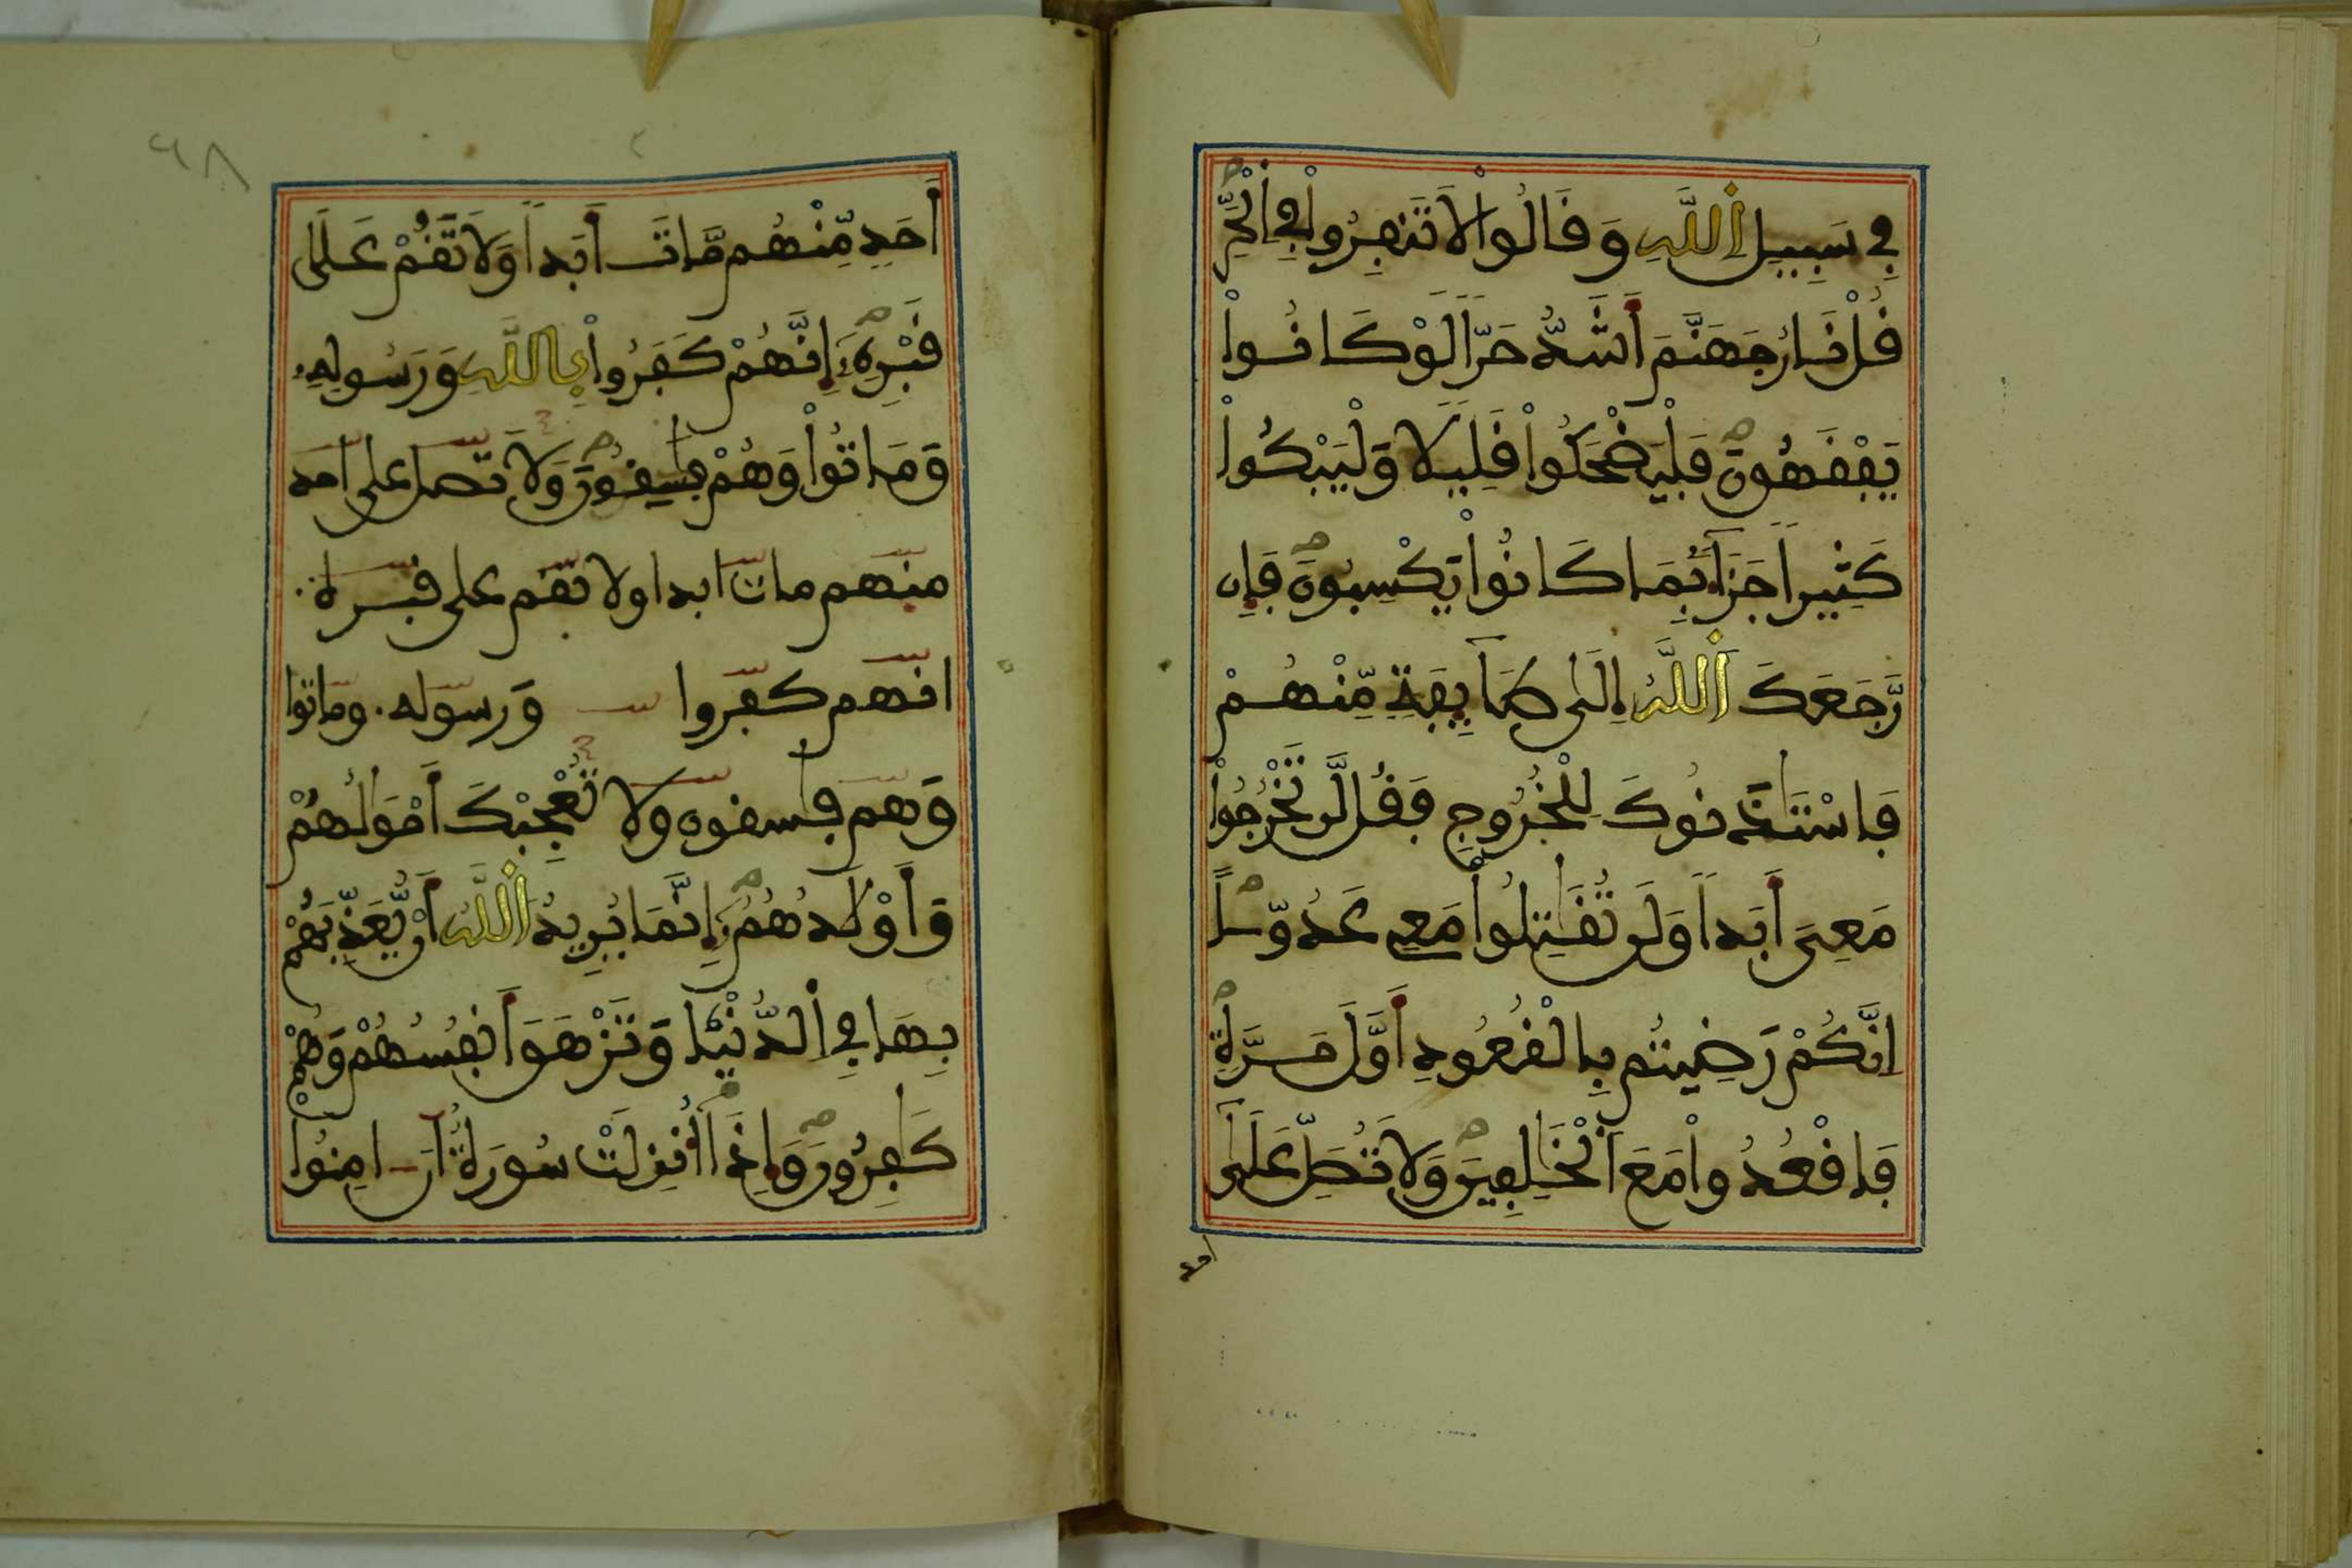 في سَبِيلِ اِ۬للَّهِ وَقَالُواْ لَا تَنفِرُواْ فِي اِ۬لْحَرِّ
قُلْ نَارُ جَهَنَّمَ أَشَدُّ حَرّاً لَوْ كَانُواْ
يَفْقَهُونَ فَلْيَضْحَكُواْ قَلِيلًا وَلْيَبْكُواْ
كَثِيراً جَزَآءَۢ بِمَا كَانُواْ يَكْسِبُونَ فَإِن
رَّجَعَكَ اَ۬للَّهُ إِلَىٰ طَآئِفَةٍ مِّنْهُمْ
فَاسْتَـٔذَنُوكَ لِلْخُرُوجِ فَقُل لَّن تَخْرُجُواْ
مَعِىَ أَبَداً وَلَن تُقَٰتِلُواْ مَعِي عَدُوّاً
اِنَّكُمْ رَضِيتُم بِالْقُعُودِ أَوَّلَ مَرَّةٍ
فَاقْعُدُواْ مَعَ اَ۬لْخَٰلِفِينَ وَلَا تُصَلِّ عَلَىٰٓ
أحد
٦٨
أَحَدٍ مِّنْهُم مَّاتَ أَبَداً وَلَا تَقُمْ عَلَىٰ
قَبْرِهِۦٓ إِنَّهُمْ كَفَرُواْ بِاللَّهِ وَرَسُولِهِۦ
وَمَاتُواْ وَهُمْ فَٰسِقُونَ وَلَا تصل على احد
منهم مات ابدا ولا تقم على قبره
انهم كفروا وَرسوله وماتوا
وَهم فٰسقون ولا تُعْجِبْكَ أَمْوَٰلُهُمْ
وَأَوْلَٰدُهُمُۥٓ إِنَّمَا يُرِيدُ اُ۬للَّهُ أَنْ يُّعَذِّبَهُمْ
بِهَا فِي اِ۬لدُّنْيَا وَتَزْهَقَ أَنفُسُهُمْ وَهُمْ
كَٰفِرُونَ وَإِذَآ أُنزِلَتْ سُورَةٌ أَنَ اٰمِنُوا